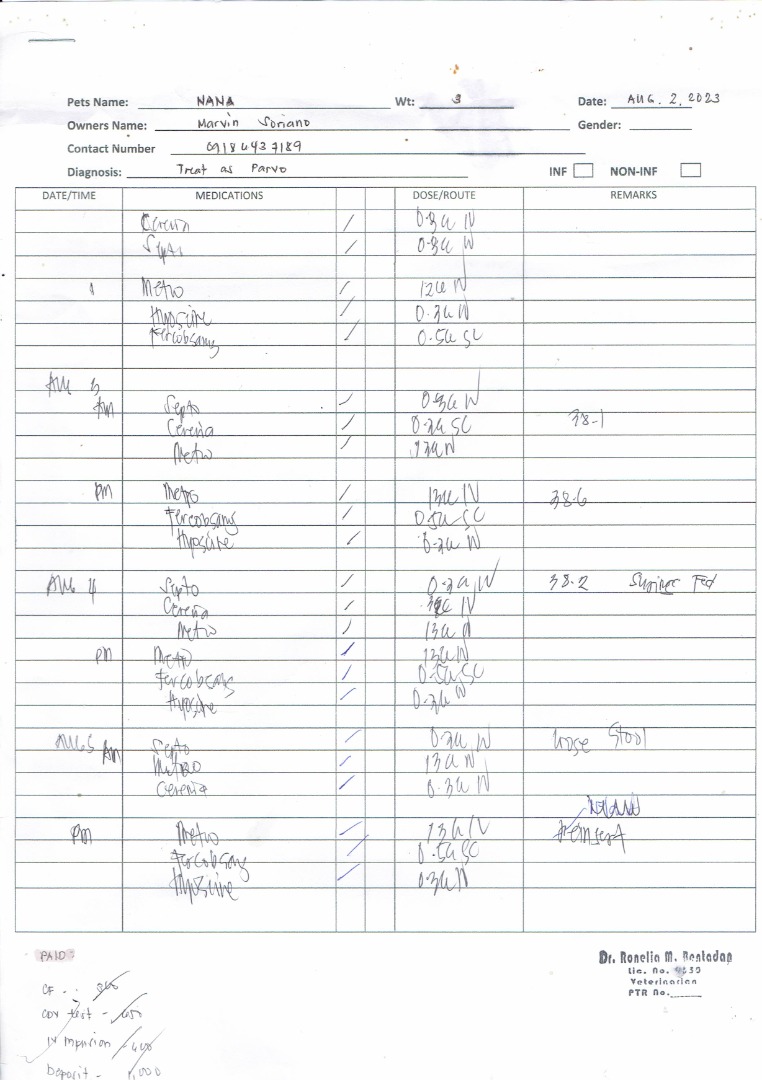 Pets Name: NANA Wt: 3 Date: AUG. 2, 2023
Owners Name: Marvin Soriano Gender:
Contact Number 09186437189
Diagnosis: Treat as Parvo INF NON-INF
DATE/TIME MEDICATIONS DOSE/ROUTE REMARKS
Cerenia / 0.3cc IV
Septo / 0.3cc IV
Metro / 12cc IV
Hyoscine / 0.3cc IV
Fercobsang / 0.5cc SC
AUG 3
AM Septo / 0.3cc IV
Cerenia / 0.3cc SC 38.1
Metro / 13cc IV
PM Metro / 13cc IV 38.6
Fercobsang / 0.5cc SC
Hyoscine / 0.3cc IV
AUG 4 Septo / 0.3cc IV 38.2 Syringe Fed
Cerenia / IV
Metro / 13cc IV
PM Metro / 13cc IV
Fercobsang / 0.5cc SC
Hyoscine / 0.3cc IV
AUG 5 AM Septo / 0.3cc IV Loose Stool
Metro / 13cc IV
Cerenia / 0.3cc IV
PM Metro / 13cc IV
Fercobsang / 0.5cc SC
Hyoscine / 0.3cc IV
PAID:
Dr. Ronelia M. Bentadan
Lic. No.
Veterinarian
PTR No.
CF - 
CDV test - 650
IV - 400
Deposit - 1,000